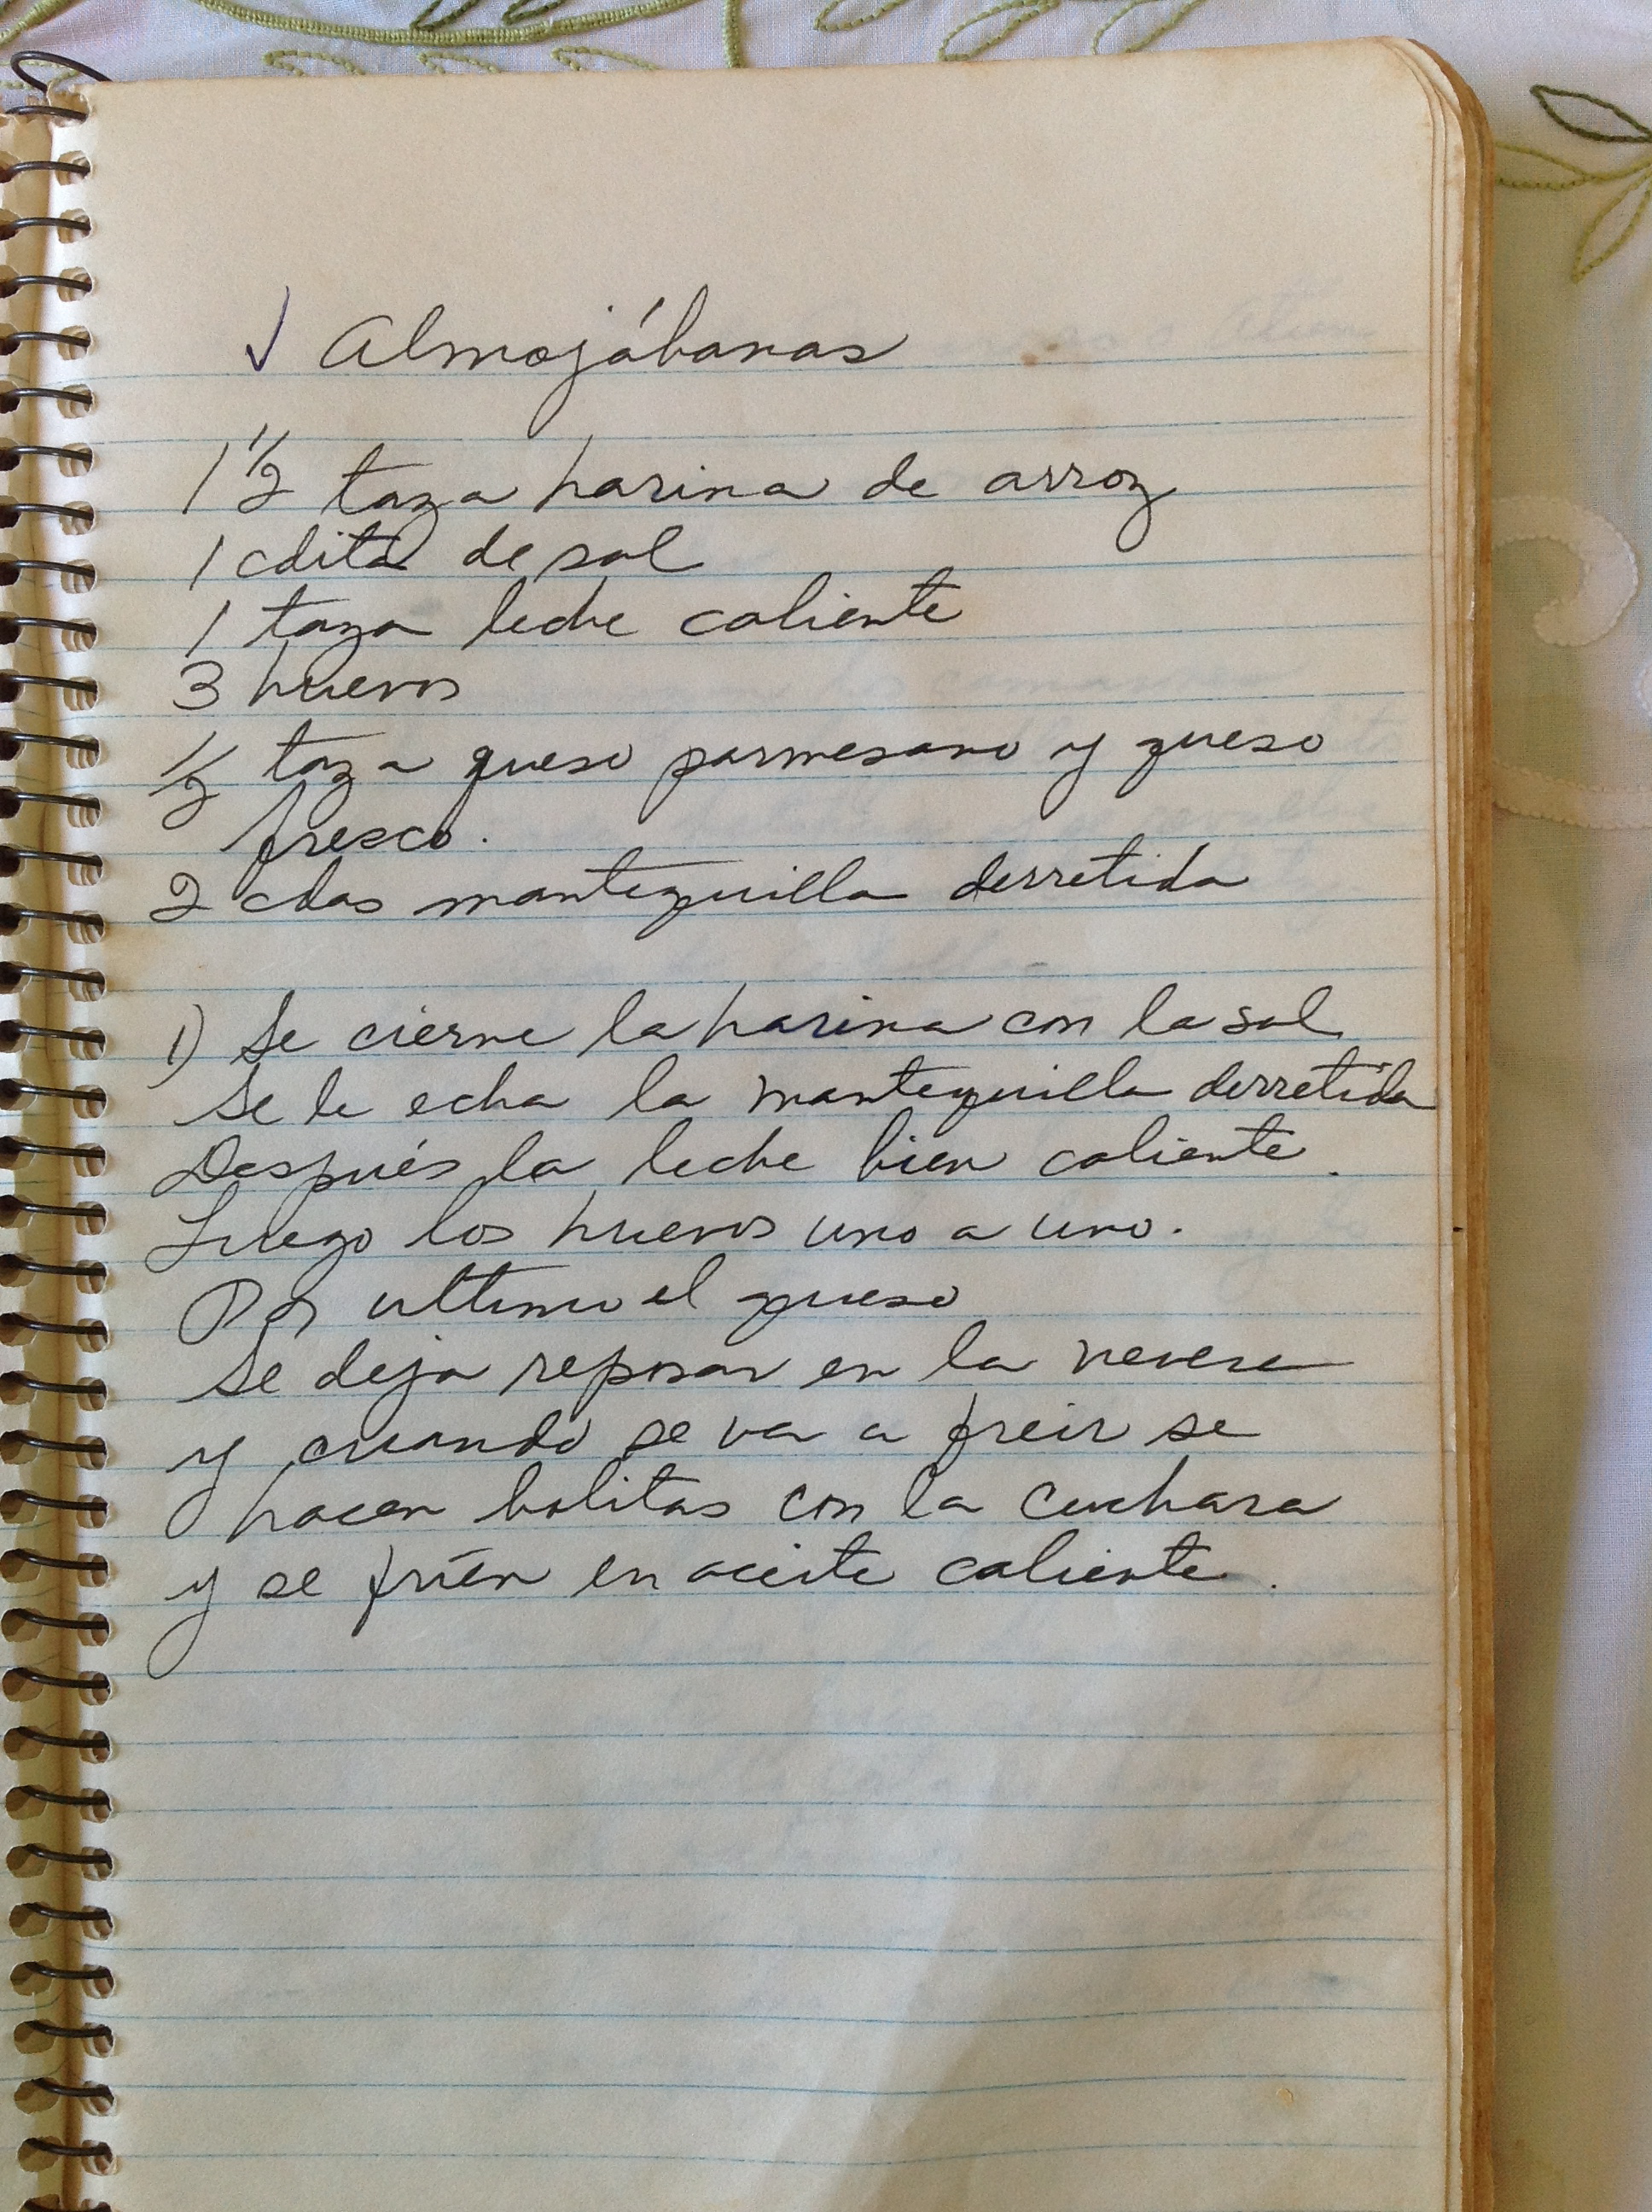 ✓ Almojábanas
1 1/2 taza harina de arroz
1 cdita de sal
1 taza leche caliente
3 huevos
1/2 taza queso parmesano y queso
fresco.
2 cdas mantequilla derretida
1) Se cierne la harina con la sal
Se le echa la mantequilla derretida
Después la leche bien caliente.
Luego los huevos uno a uno.
Por ultimo el queso
Se deja reposar en la nevera
y cuando se va a freir se
hacen bolitas con la cuchara
y se fríen en aceite caliente.